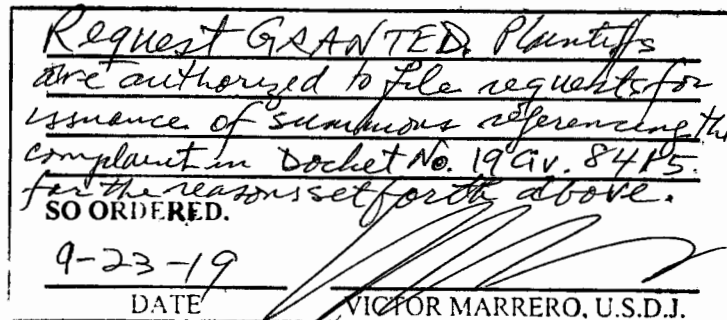 Request GRANTED. Plaintiffs
are authorized to file requests for
issuance of summons referencing the
complaint in Docket No. 19 Civ. 8415.
for the reasons set forth above.
SO ORDERED.
9-23-19
DATE VICTOR MARRERO, U.S.D.J.